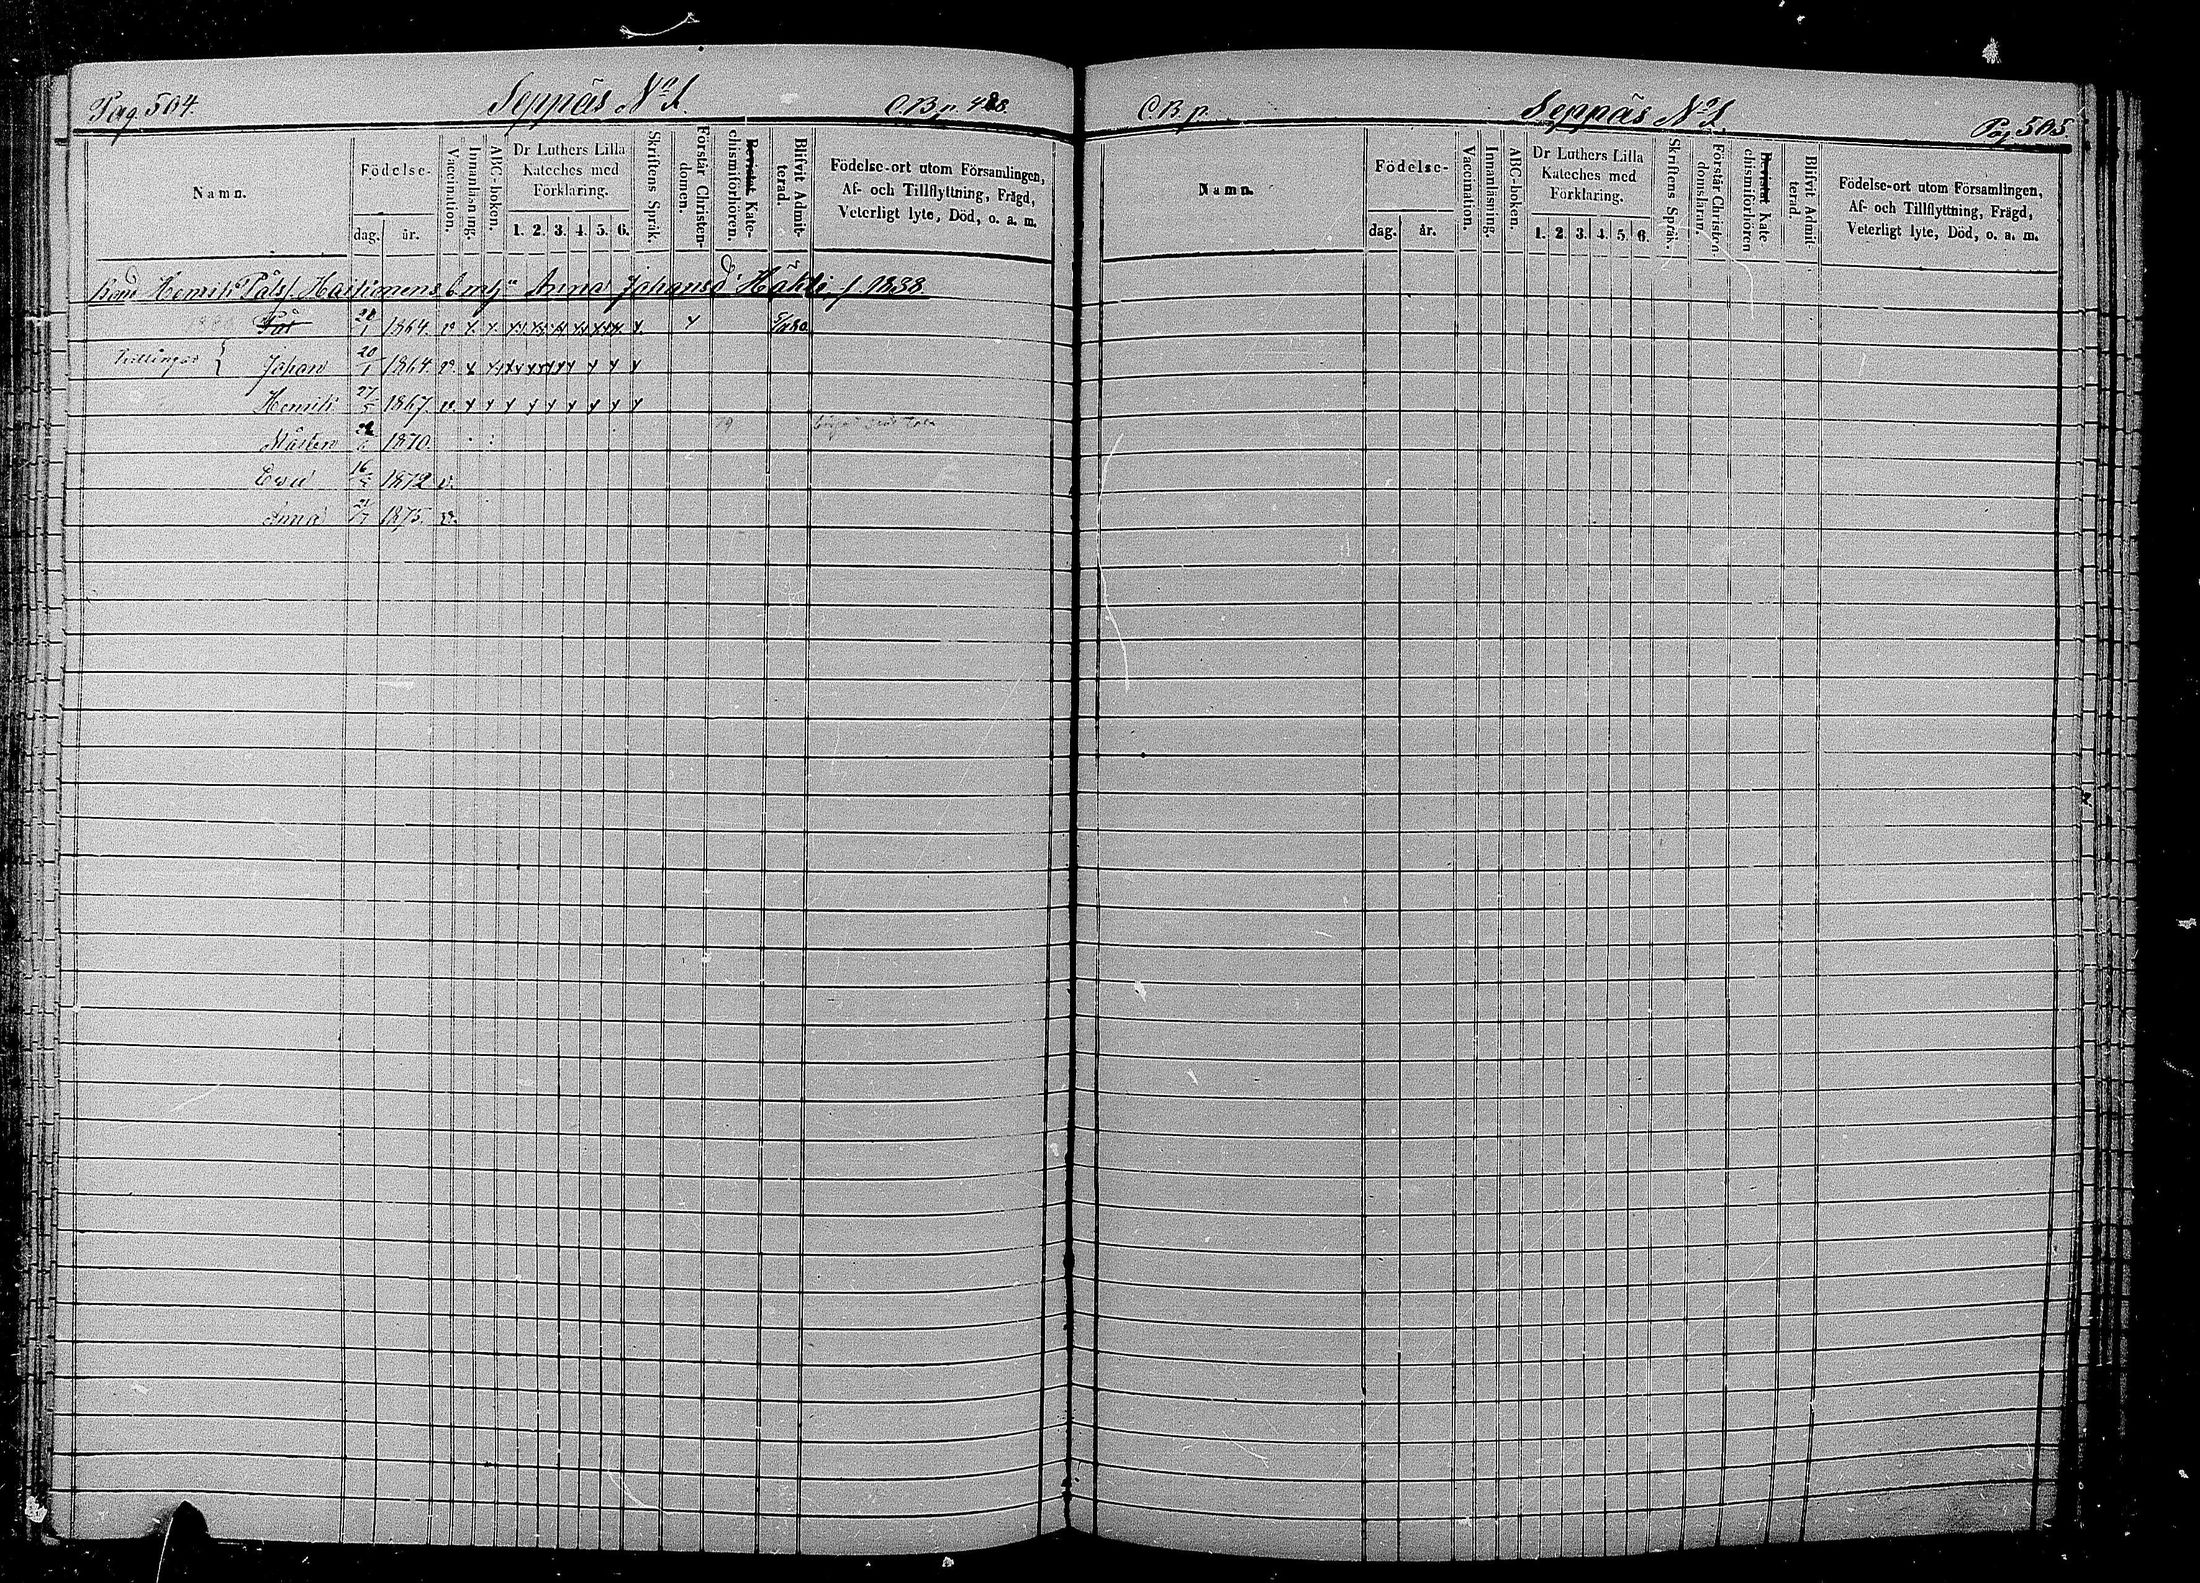 Pag. 504. Seppäs No 1. C.B. p. 488.
Namn. Födelse- dag. år. Vaccination. Innanläsning. ABC-boken. Dr Luthers Lilla Kateches med Förklaring. 1. 2. 3. 4. 5. 6. Skriftens Språk. Förstår Christendomen. Bevistat Katechismiförhören. Blifvit Admitterad. Födelse-ort utom Församlingen, Af- och Tillflyttning, Frägd, Veterligt lyte, Död, o. a. m.
Bond Henrik Påls. Anna Johansd
Pål 1864. v.
Johan 20/1 1864 v.
Henrik 27/5 1867. v.
Mårten 1870.
Eva 16 1872 v.
Anna 21 1875. v.
C.B. p. Seppäs No 1. Pag. 505
Namn. Födelse- dag. år. Vaccination. Innanläsning. ABC-boken. Dr Luthers Lilla Kateches med Förklaring. 1. 2. 3. 4. 5. 6. Skriftens Språk. Förstår Christendomsläran. Bevistat Katechismiförhören Blifvit Admitterad. Födelse-ort utom Församlingen, Af- och Tillflyttning, Frägd, Veterligt lyte, Död, o. a. m.